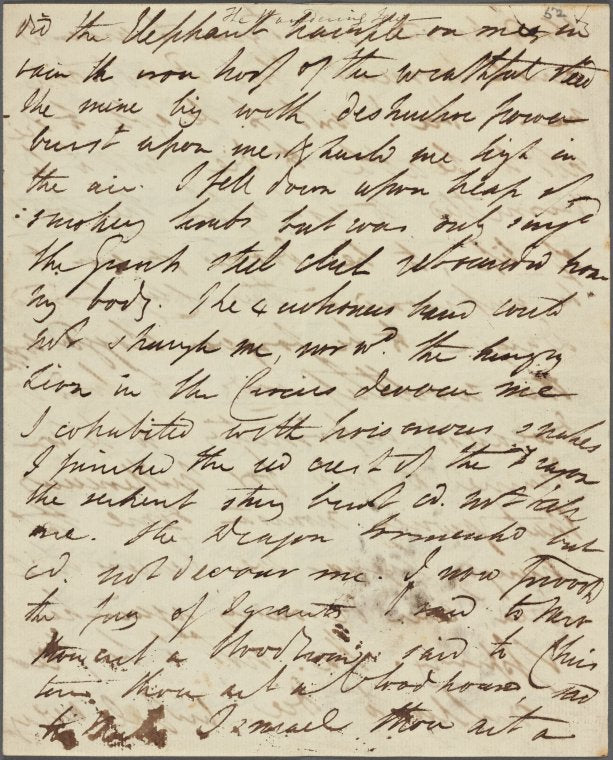 The Wandering Jew
52
did the Elephant trample on me, in
vain the iron hoof of the wrathful steed
the mine big with destructive power
burst upon me, & hurld me high in
the air. I fell down upon heap of
smoking limbs but was only singd
the Giants steel club rebounded from
my body. The executioners hand could
not strangle me, nor wd. the hungry
Lion in the Circus devour me
I cohabited with poisonous snakes
I pinched the red crest of the Dragon
the serpent stung but cd. not kill
me. The Dragon tormented but
cd. not devour me. I now provok
the fury of Tyrants I said to Nero
thou art a Bloodhound said to Chris
tern thou art a bloodhound, said
to Muley Ismael thou art a